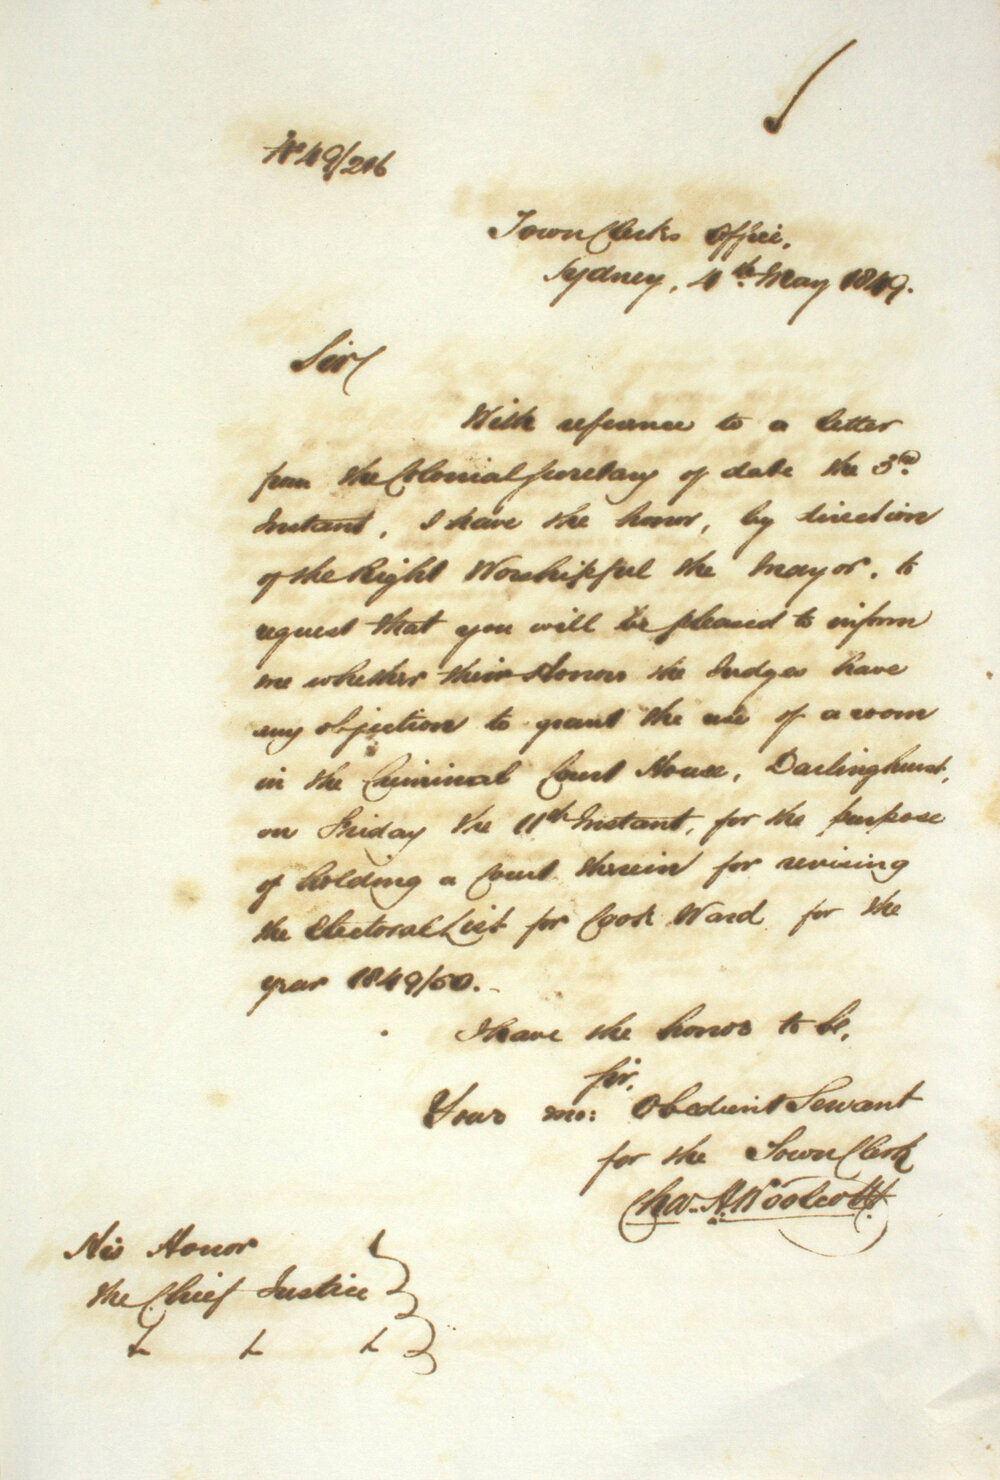 No 49/216
Town Clerks Office,
Sydney, 4th May 1849.
Sir
With reference to a letter
from the Colonial Secretary of date the 3rd
Instant, I have the honor, by direction
of the Right Worshipful the Mayor, to
request that you will be pleased to inform
me whether their Honors the Judges have
any objection to grant the use of a room
in the Criminal Court House, Darlinghurst,
on Friday the 11th Instant, for the purpose
of holding a Court therein for revising
the Electoral List for Cook Ward for the
year 1849/50.
I have the honor to be,
Sir,
Your mo: Obedient Servant
for the Town Clerk
Chas. H. Woolcott
His Honor
the Chief Justice
&c &c &c